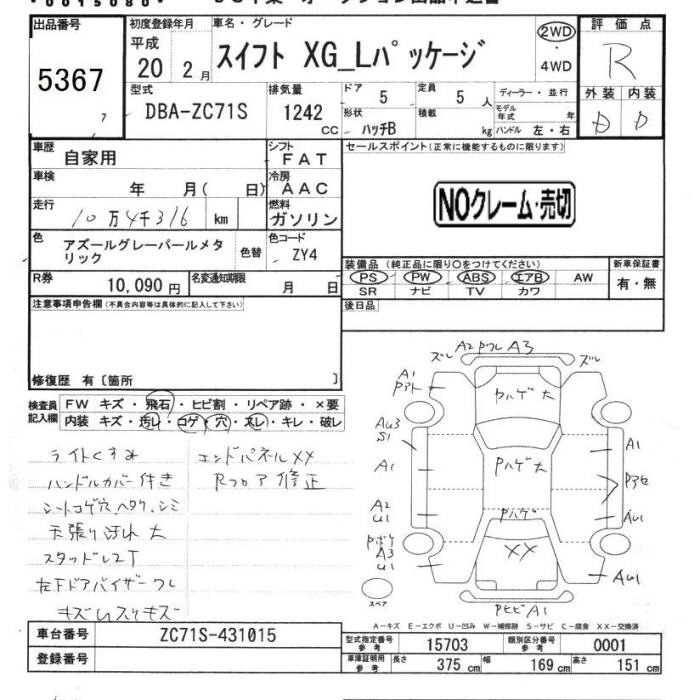 出品番号
5367
初度登録年月
平成
20 2月
車名・グレード
スイフト XG_Lパッケージ
2WD
・
4WD
評価点
R
外装 内装
D D
型式
DBA-ZC71S
排気量
1242
CC
ドア
5
定員
5 人
形状
ハッチB
積載
kg
ディーラー・並行
モデル年式 年
ハンドル 左・右
車歴
自家用
シフト
FAT
車検
年 月( 日)
冷房
AAC
走行
10万4千316 km
燃料
ガソリン
色
アズールグレーパールメタ
リック
色替
色コード
ZY4
R券
10,090円
名変通知期限
月 日
セールスポイント(正常に機能するものに限ります)
NOクレーム・売切
装備品(純正品に限り○をつけてください)
PS PW ABS エアB AW
SR ナビ TV カワ
新車保証書
有・無
後日品
注意事項申告欄(不具合内容等は具体的に記入して下さい)
修復歴 有〔箇所 〕
検査員
記入欄
FW キズ・飛石・ヒビ割・リペア跡・×要
内装 キズ・汚レ・コゲ・穴・スレ・キレ・破レ
ライトくすみ
ハンドルカバー付き
シートコゲ穴、ヘタリ、シミ
天張り汚れ大
スタッドレスT
左下ドアバイザーワレ
キズUスリキズ
エンドパネルXX
Rフロア修正
ズレ A2 PワレA3 ズレ
A1
Pアト
Pハゲ大
AU3
S1
A1
A1
Pハゲ大
Pアセ
A2
U1
Pハゲ
AU1
Pボケ
A3
U1
XX
AU1
スペア
PヒビA1
A-キズ E-エクボ U-凹み W-補修跡 S-サビ C-腐食 XX-交換済
車台番号
ZC71S-431015
登録番号
型式指定番号
参考
15703
類別区分番号
参考
0001
車庫証明用
参考
長さ 375 cm 幅 169 cm 高さ 151 cm